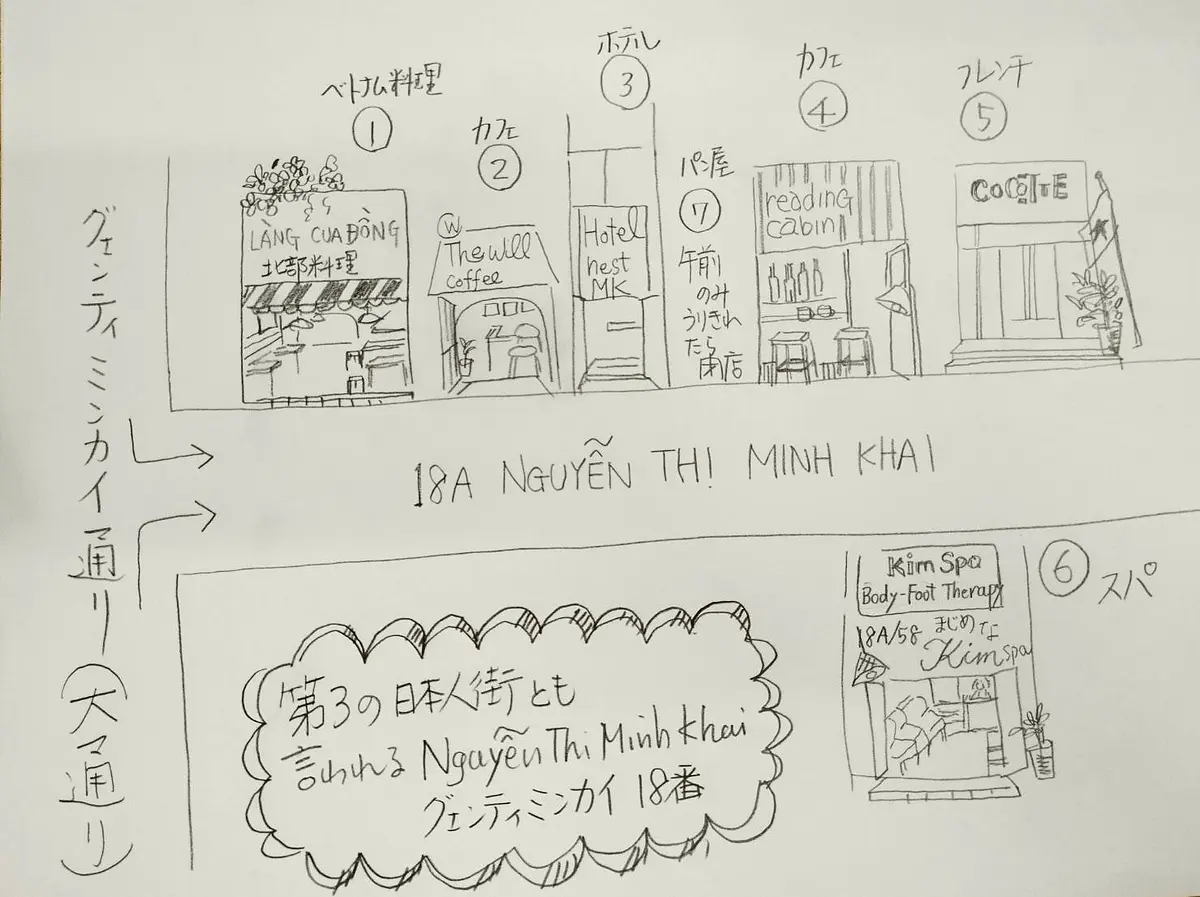 ベトナム料理
①
LÀNG CUA ĐỒNG
北部料理
カフェ
②
W
The will
coffee
ホテル
③
Hotel
nest
MK
パン屋
⑦
午前
のみ
うりきれ
たら
閉店
カフェ
④
reading
cabin
フレンチ
⑤
COCOTTE
グェンティミンカイ通り(大通り)
18A NGUYỄN THỊ MINH KHAI
Kim Spa
Body-Foot Therapy
18A/58 まじめな
Kim spa
⑥
スパ
第3の日本人街とも
言われる Nguyễn Thi Minh Khai
グェンティミンカイ 18番